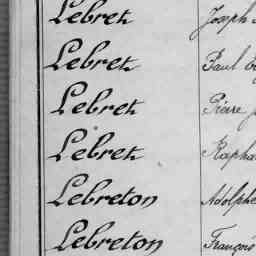 Lebret Joseph
Lebret Paul
Lebret Pierre
Lebret Rapha
Lebreton Adolphe
Lebreton François